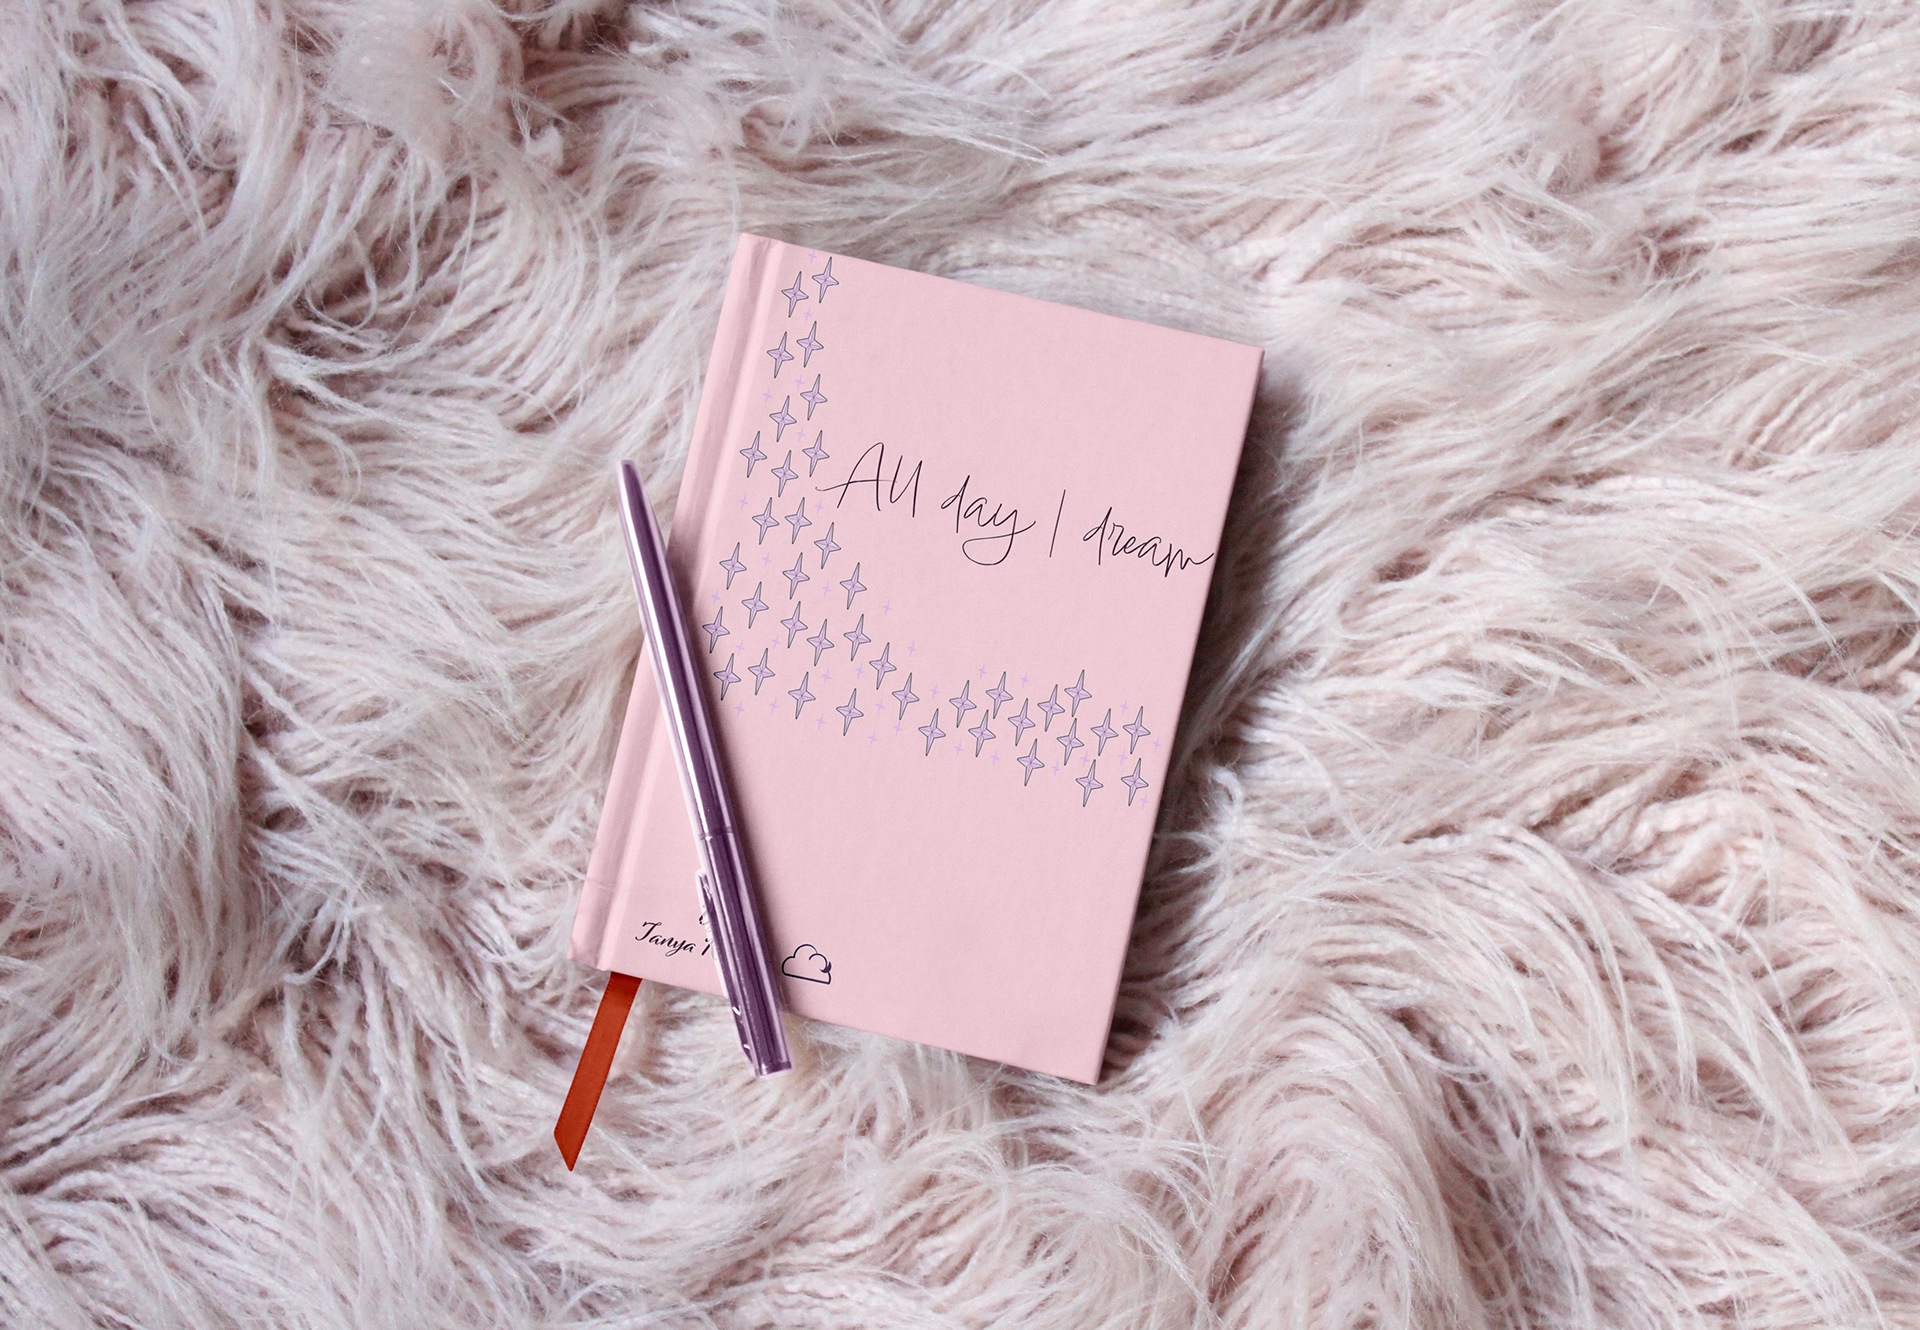 All day I dream
Tanya